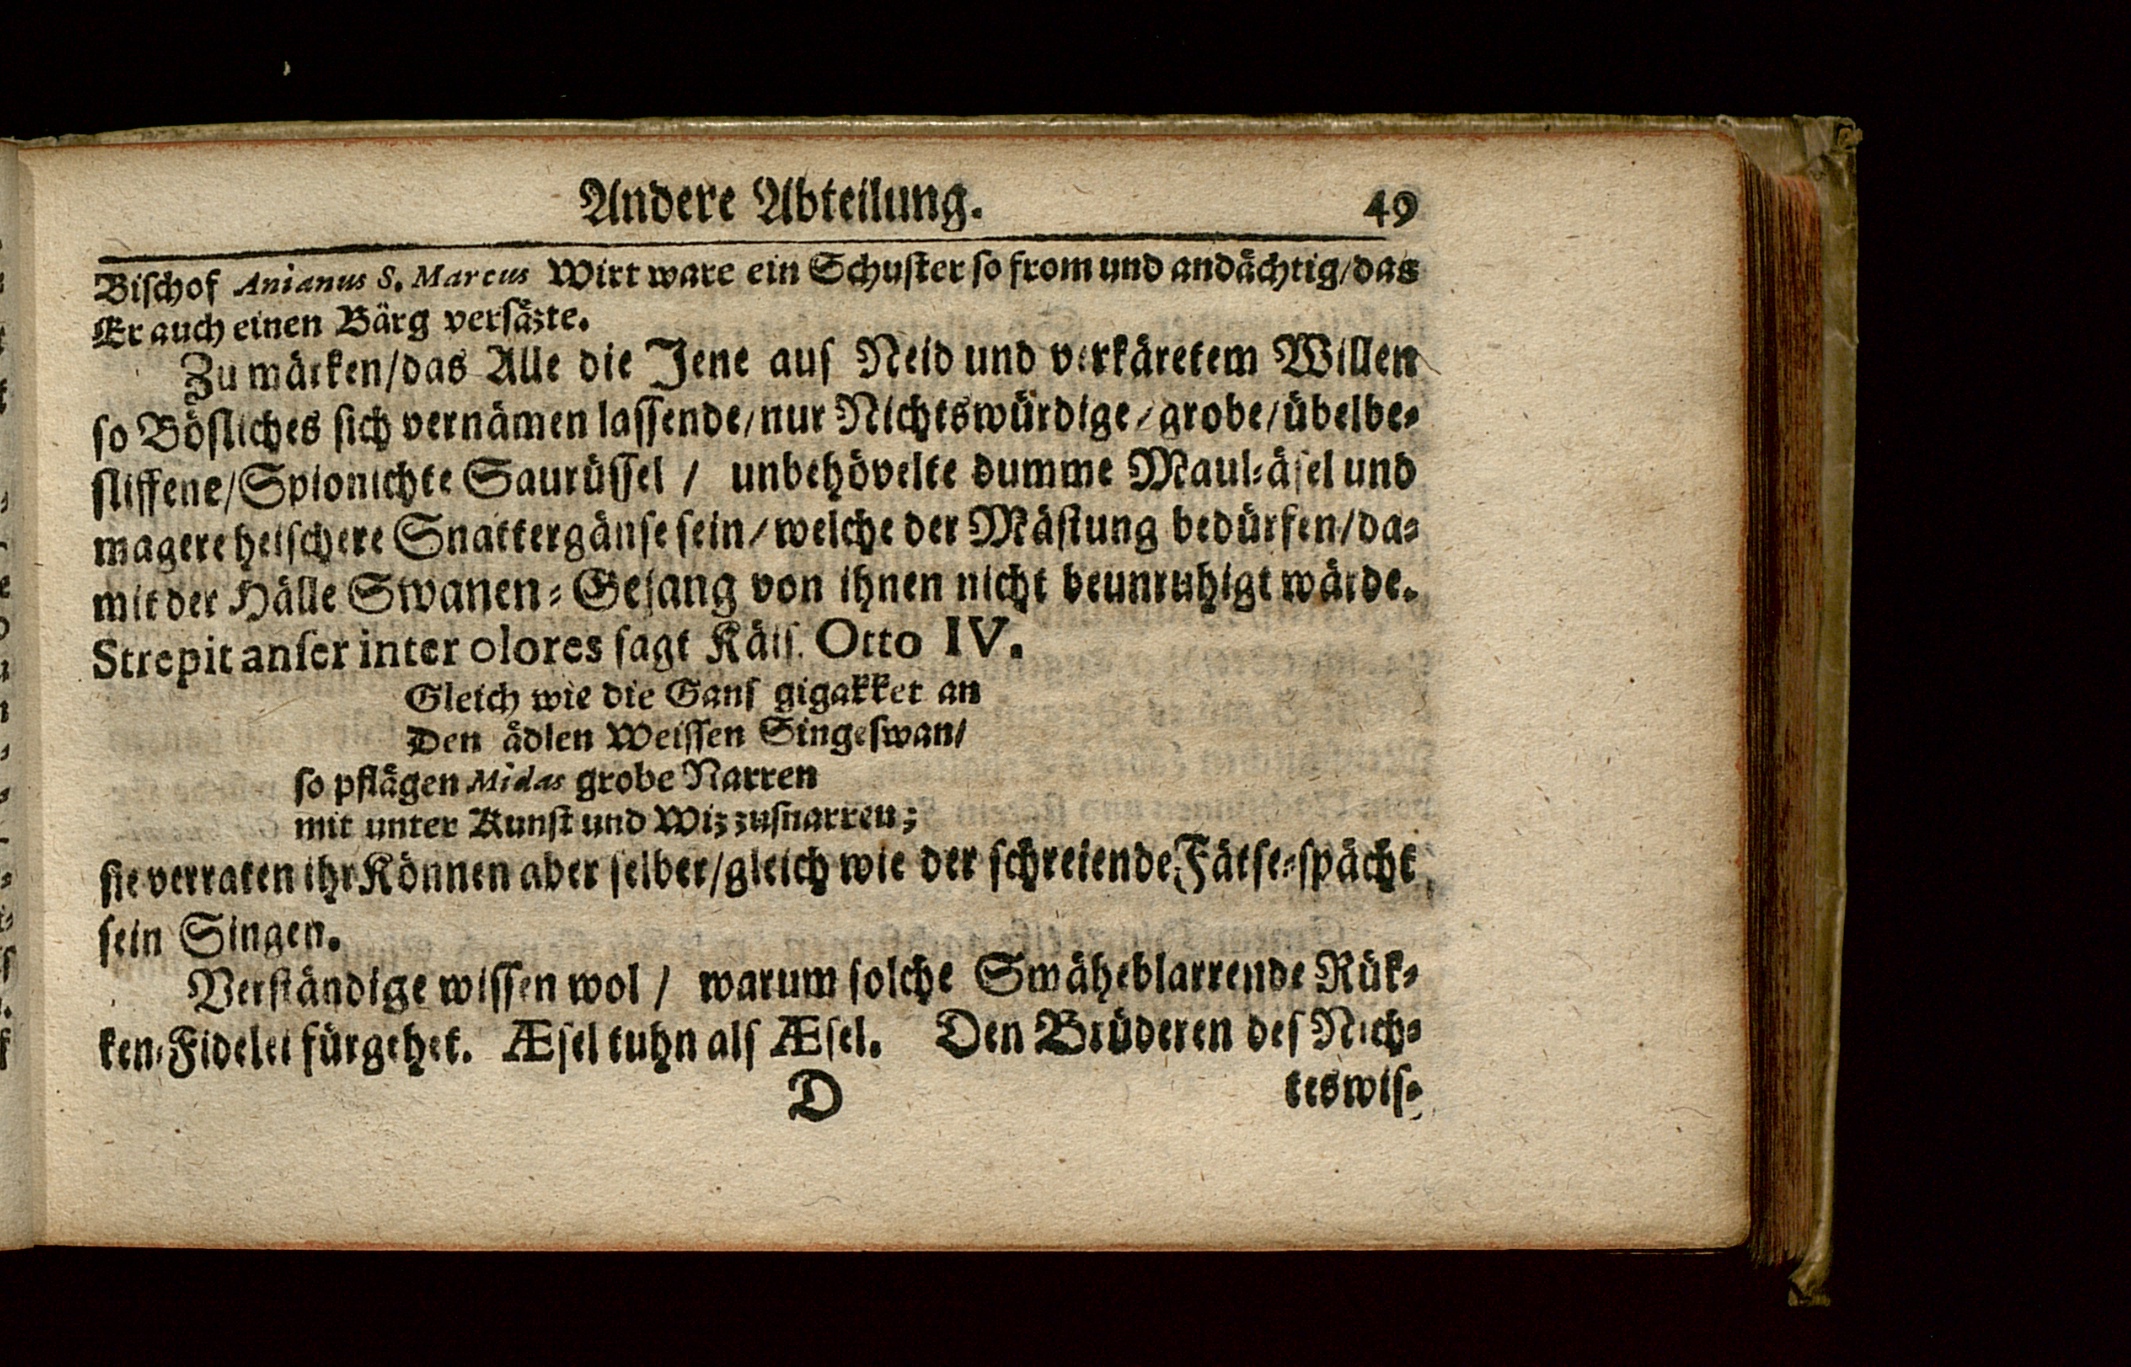 Andere Abteilung. 49
Biſchof Anianus S. Marcus Wirt ware ein Schuſter ſo from und andächtig/das
Er auch einen Bärg verſäzte.
Zu märken/das Alle die Jene auſ Neid und verkäretem Willen
ſo Böſliches ſich vernämen laſſende/nur Nichtswürdige/grobe/übelbe⸗
ſliffene/Spionichte Saurüſſel / unbehövelte dumme Maul⸗äſel und
magere heiſchere Snattergänſe ſein/welche der Mäſtung bedürfen/da⸗
mit der Hälle Swanen⸗Geſang von ihnen nicht beunruhigt wärde.
Strepit anſer inter olores ſagt Käiſ. Otto IV.
Gleich wie die Ganſ gigakket an
Den ädlen Weiſſen Singeſwan/
ſo pflägen Midas grobe Narren
mit unter Kunſt und Wiz zuſnarren;
ſie verraten ihr Können aber ſelber/gleich wie der ſchreiende Fätſe⸗ſpächt
ſein Singen.
Verſtändige wiſſen wol / warum ſolche Swäheblarrende Rük⸗
ken⸗Fidelei fürgehet. Æſel tuhn alſ Æſel. Den Brüderen deſ Nich⸗
D teswiſ⸗